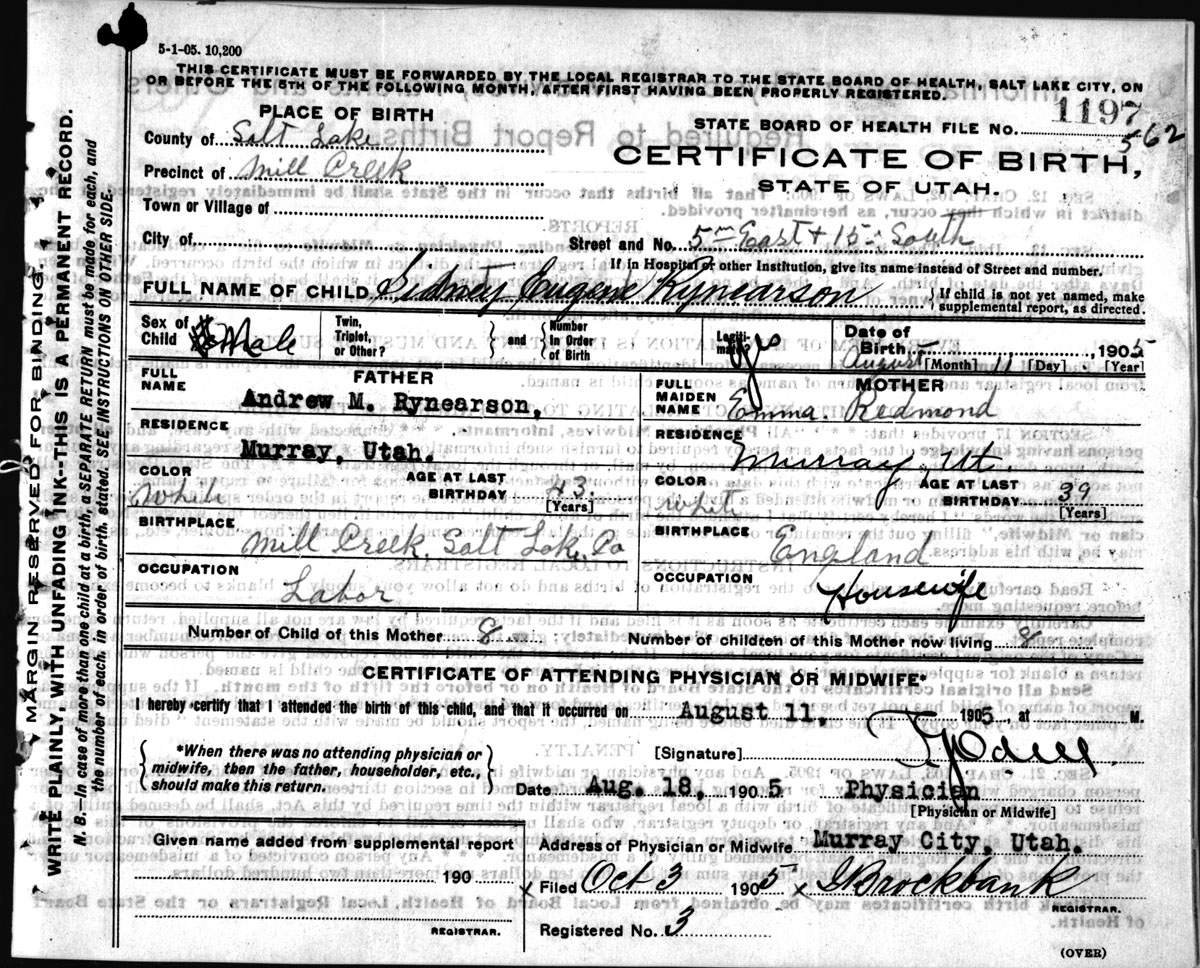 5-1-05. 10,200
THIS CERTIFICATE MUST BE FORWARDED BY THE LOCAL REGISTRAR TO THE STATE BOARD OF HEALTH, SALT LAKE CITY, ON
OR BEFORE THE 5TH OF THE FOLLOWING MONTH, AFTER FIRST HAVING BEEN PROPERLY REGISTERED.
PLACE OF BIRTH
STATE BOARD OF HEALTH FILE NO. 1197
562
County of Salt Lake
CERTIFICATE OF BIRTH,
Precinct of Mill Creek
STATE OF UTAH.
Town or Village of
City of
Street and No. 5th East + 15th South
If in Hospital or other Institution, give its name instead of Street and number.
FULL NAME OF CHILD Sidney Eugene Rynearson
If child is not yet named, make
supplemental report, as directed.
Sex of Child Male
Twin, Triplet, or Other?
and
Number in Order of Birth
Legitimate? yes
Date of Birth August 11, 1905
[Month] [Day] [Year]
FATHER
FULL NAME
Andrew M. Rynearson,
RESIDENCE
Murray, Utah.
COLOR
White
AGE AT LAST BIRTHDAY 43
[Years]
BIRTHPLACE
Mill Creek, Salt Lake, Co
OCCUPATION
Labor
MOTHER
FULL MAIDEN NAME
Emma Redmond
RESIDENCE
Murray, Ut.
COLOR
White
AGE AT LAST BIRTHDAY 39
[Years]
BIRTHPLACE
England
OCCUPATION
Housewife
Number of Child of this Mother 8
Number of children of this Mother now living 8
CERTIFICATE OF ATTENDING PHYSICIAN OR MIDWIFE*
I hereby certify that I attended the birth of this child, and that it occurred on August 11, 1905, at M.
*When there was no attending physician or
midwife, then the father, householder, etc.,
should make this return.
[Signature]
Date Aug. 18, 1905 Physician
[Physician or Midwife]
Given name added from supplemental report
190
REGISTRAR.
Address of Physician or Midwife Murray City, Utah.
x Filed Oct 3 1905 x Brockbank
REGISTRAR.
Registered No. 3
(OVER)
MARGIN RESERVED FOR BINDING
WRITE PLAINLY WITH UNFADING INK--THIS IS A PERMANENT RECORD.
N. B.--In case of more than one child at a birth, a SEPARATE RETURN must be made for each, and
the number of each, in order of birth, stated. SEE INSTRUCTIONS ON OTHER SIDE.